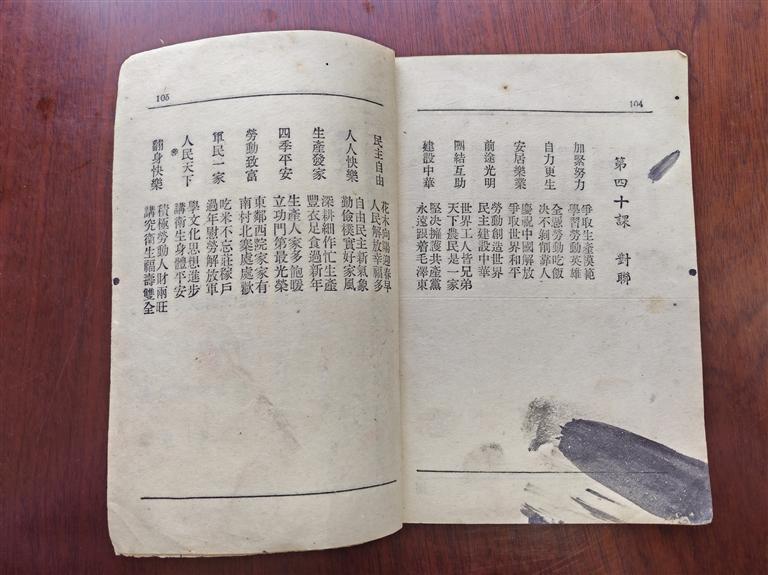 104
第四十課 對聯
加緊努力
爭取生產模範
學習勞動英雄
自力更生
全憑勞動吃飯
决不剝削靠人
安居樂業
慶祝中國解放
爭取世界和平
前途光明
勞動創造世界
民主建設中華
團結互助
世界工人皆兄弟
天下農民是一家
建設中華
堅決擁護共產黨
永遠跟着毛澤東
105
民主自由
花木向陽迎春早
人民解放幸福多
人人快樂
自由民主新氣象
勤儉樸實好家風
生產發家
深耕細作忙生產
豐衣足食過新年
四季平安
生產人家多飽暖
立功門第最光榮
勞動致富
東鄰西院家家有
南村北寨處處歡
軍民一家
吃米不忘莊稼戶
過年慰勞解放軍
人民天下
學文化思想進步
講衛生身體平安
翻身快樂
積極勞動人財兩旺
講究衛生福壽雙全